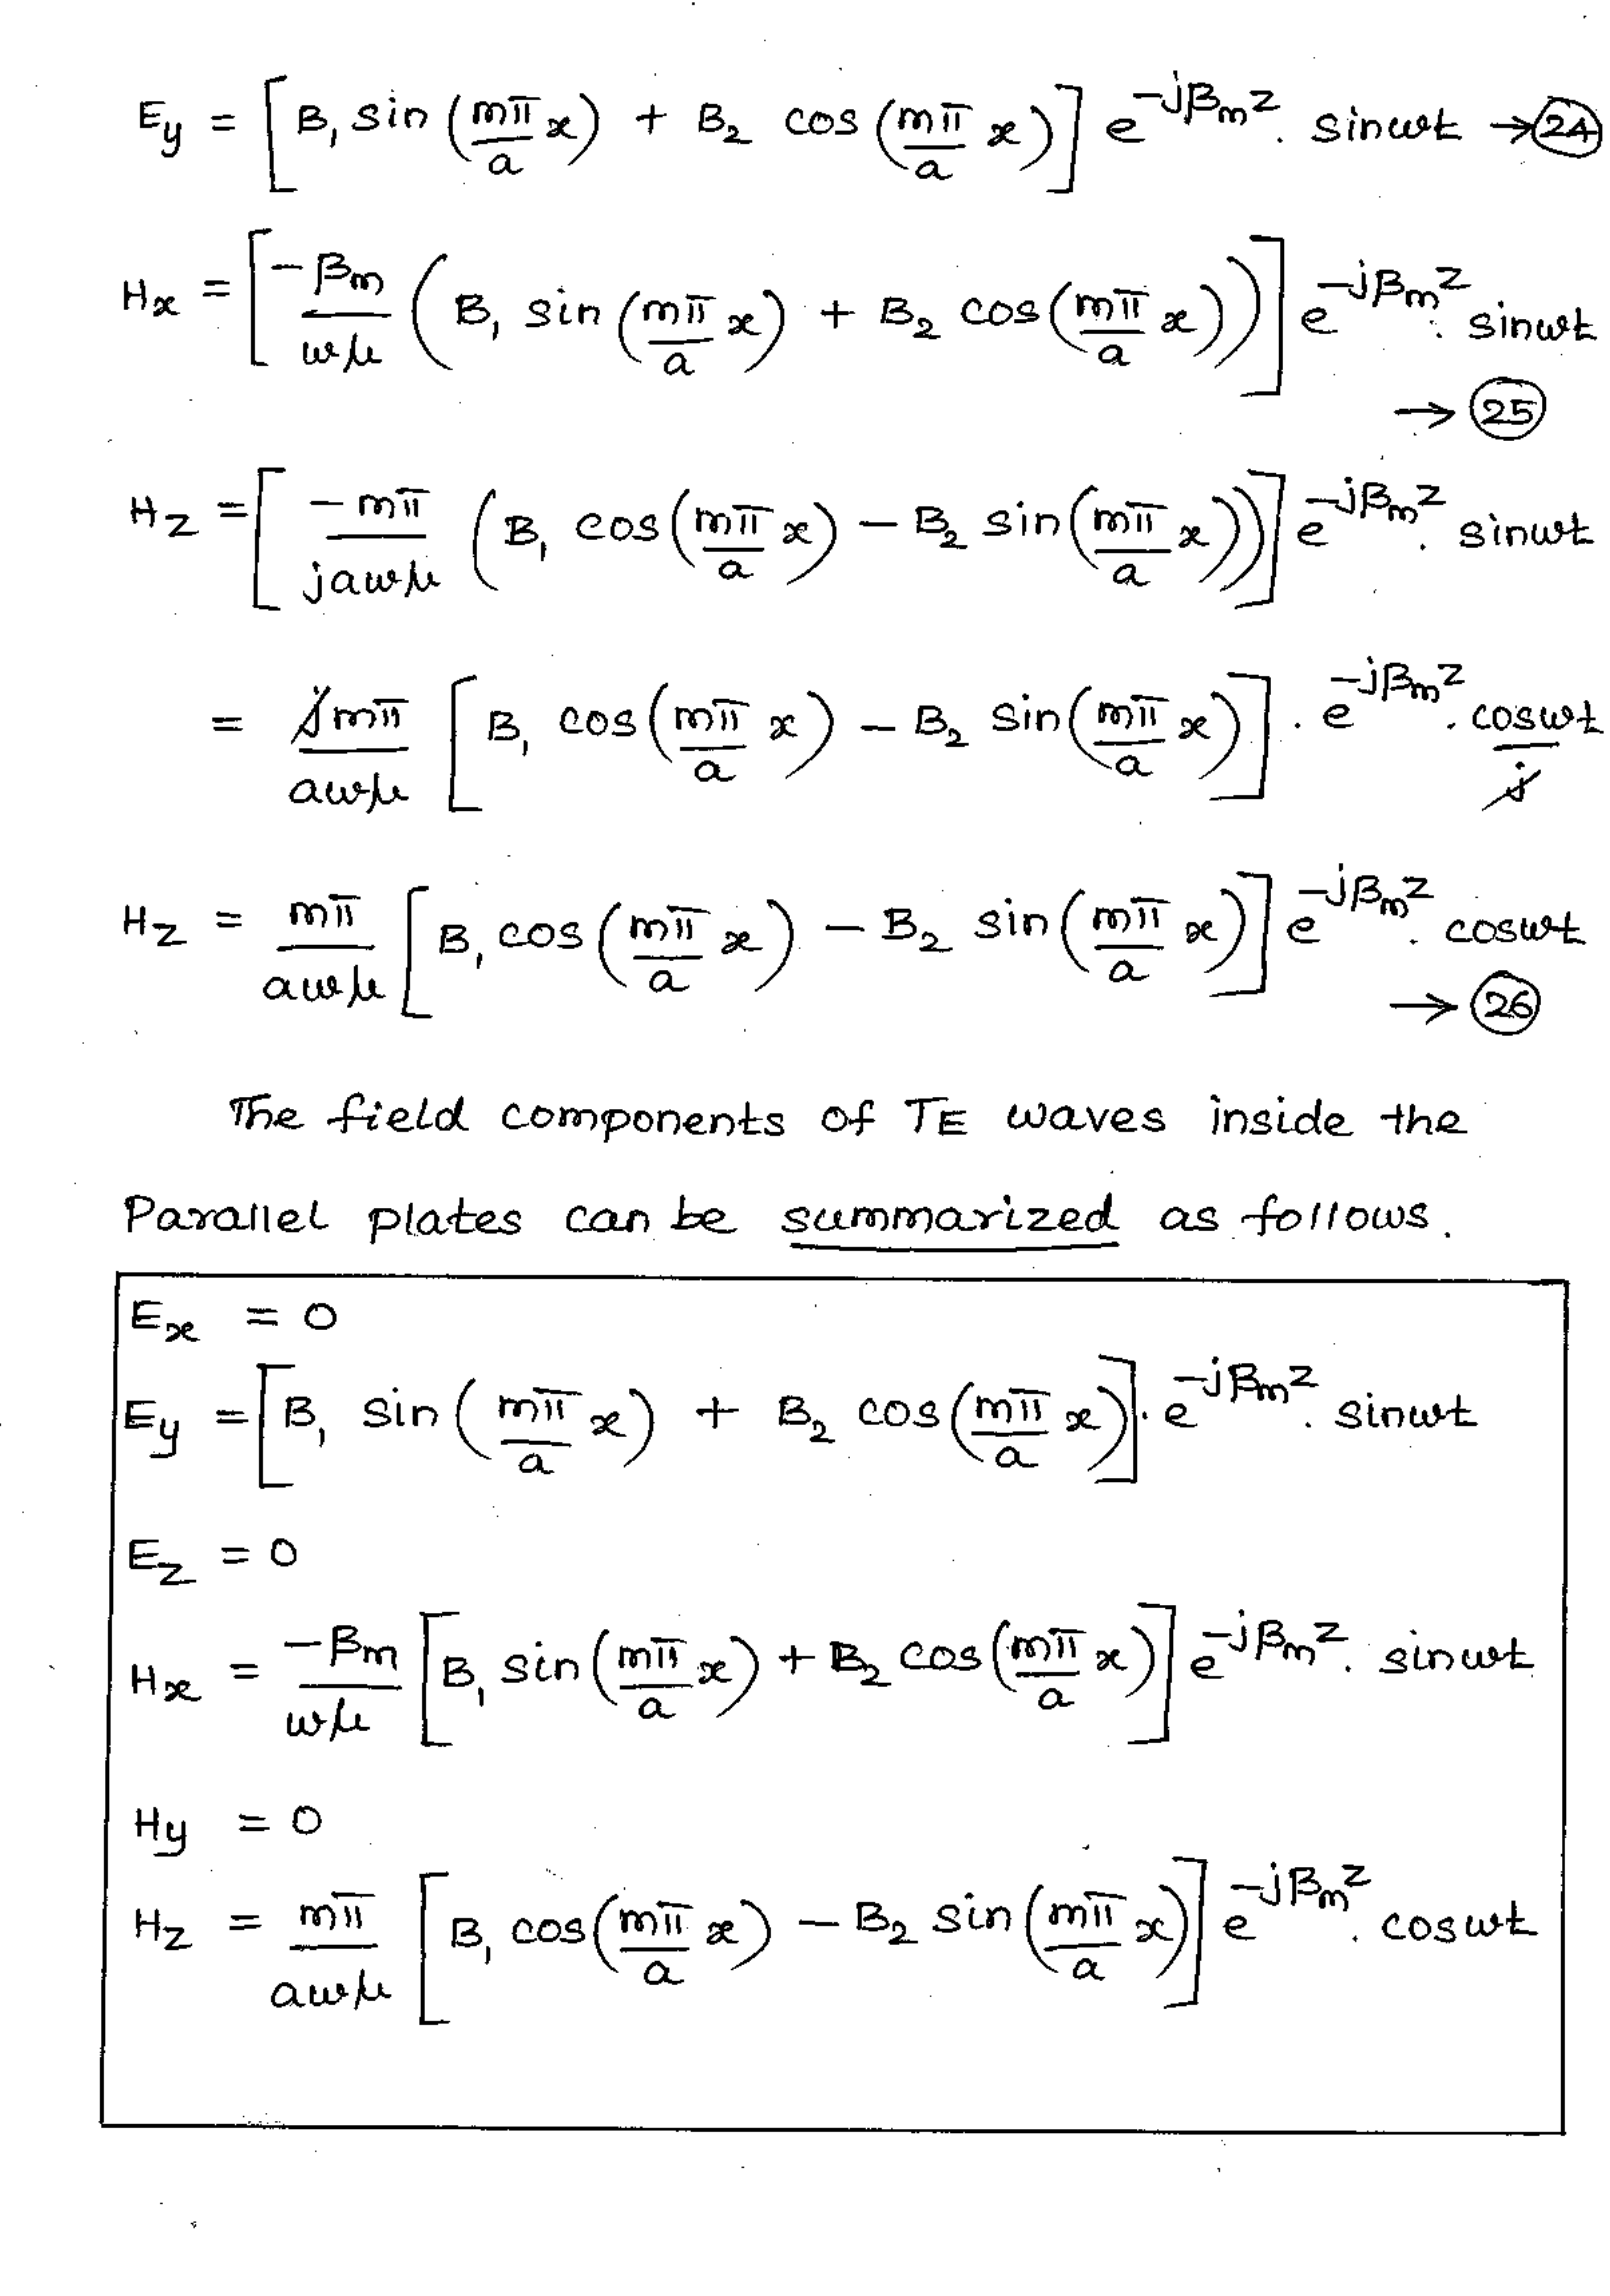 E_y = [B₁ sin(mπ/a x) + B₂ cos(mπ/a x)] e^{-jβ_m z}. sinωt → (24)
H_x = [-β_m/ωμ (B₁ sin(mπ/a x) + B₂ cos(mπ/a x))] e^{-jβ_m z}. sinωt
→ (25)
H_z = [-mπ/jaωμ (B₁ cos(mπ/a x) - B₂ sin(mπ/a x))] e^{-jβ_m z}. sinωt
= jmπ/aωμ [B₁ cos(mπ/a x) - B₂ sin(mπ/a x)]. e^{-jβ_m z}. cosωt/j
H_z = mπ/aωμ [B₁ cos(mπ/a x) - B₂ sin(mπ/a x)] e^{-jβ_m z}. cosωt
→ (26)
The field components of TE waves inside the
Parallel plates can be summarized as follows.
E_x = 0
E_y = [B₁ sin(mπ/a x) + B₂ cos(mπ/a x)]. e^{-jβ_m z}. sinωt
E_z = 0
H_x = -β_m/ωμ [B₁ sin(mπ/a x) + B₂ cos(mπ/a x)] e^{-jβ_m z}. sinωt
H_y = 0
H_z = mπ/aωμ [B₁ cos(mπ/a x) - B₂ sin(mπ/a x)] e^{-jβ_m z}. cosωt